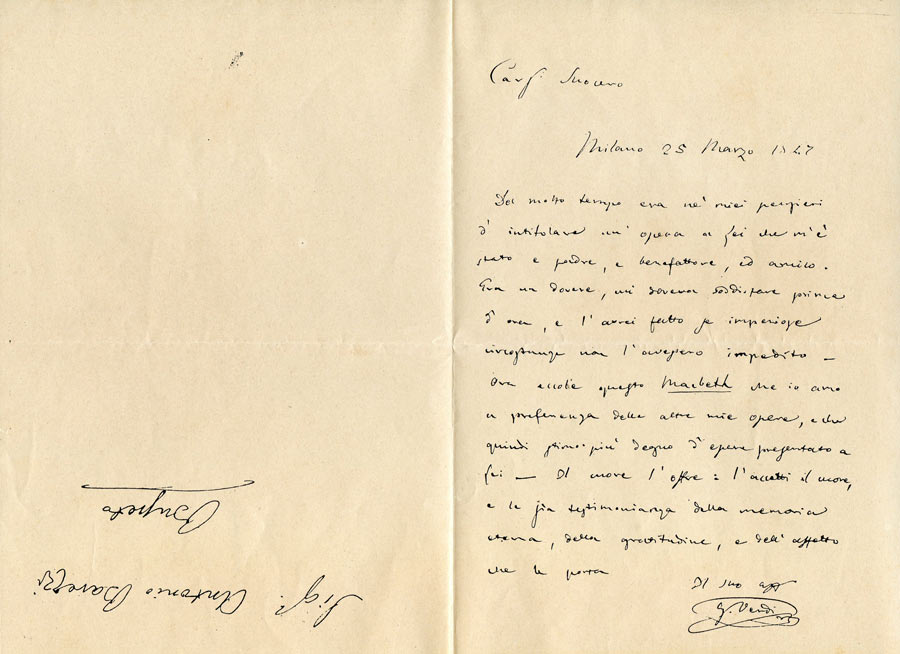 Car.° Suocero
Milano 25 Marzo 1847
Da molto tempo era ne' miei pensieri
d' intitolare un' opera a Lei che m'è
stato e padre, e benefattore, ed amico.
Era un dovere, cui doveva soddisfare prima
d' ora, e l' avrei fatto se imperiose
circostanze non l' avessero impedito –
Ora eccole questo Macbeth che io amo
a preferenza delle altre mie opere, e che
quindi stimo più degno d' essere presentato a
Lei – Il cuore l' offre: l' accetti il cuore,
e le sia testimonianza della memoria
eterna, della gratitudine, e dell' affetto
che le porta
Il suo aff
G. Verdi
Sig.r Antonio Barezzi
Busseto